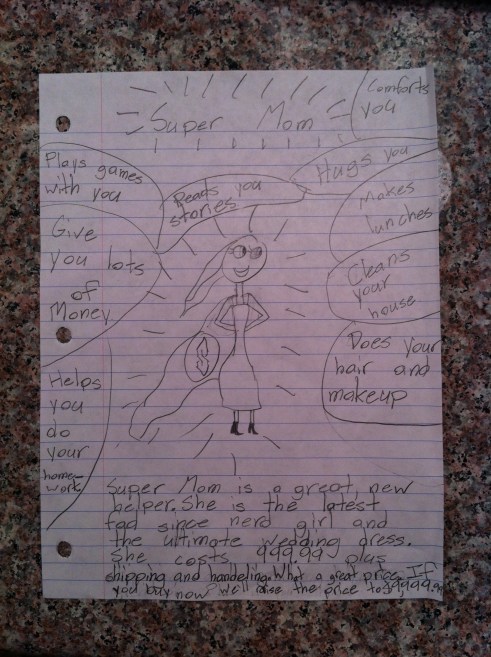 Super Mom
Comforts
you
Plays games
with you
Reads you
stories
Hugs you
Makes
lunches
Give
you lots
of
Money
Cleans
your
house
Does your
hair and
makeup
Helps
you
do
your
home-
work
S
Super Mom is a great, new
helper. She is the latest
fad since nerd girl and
the ultimate wedding dress.
She costs 999.99 plus
shipping and handeling. What a great price. If
you buy now we'll raise the price to